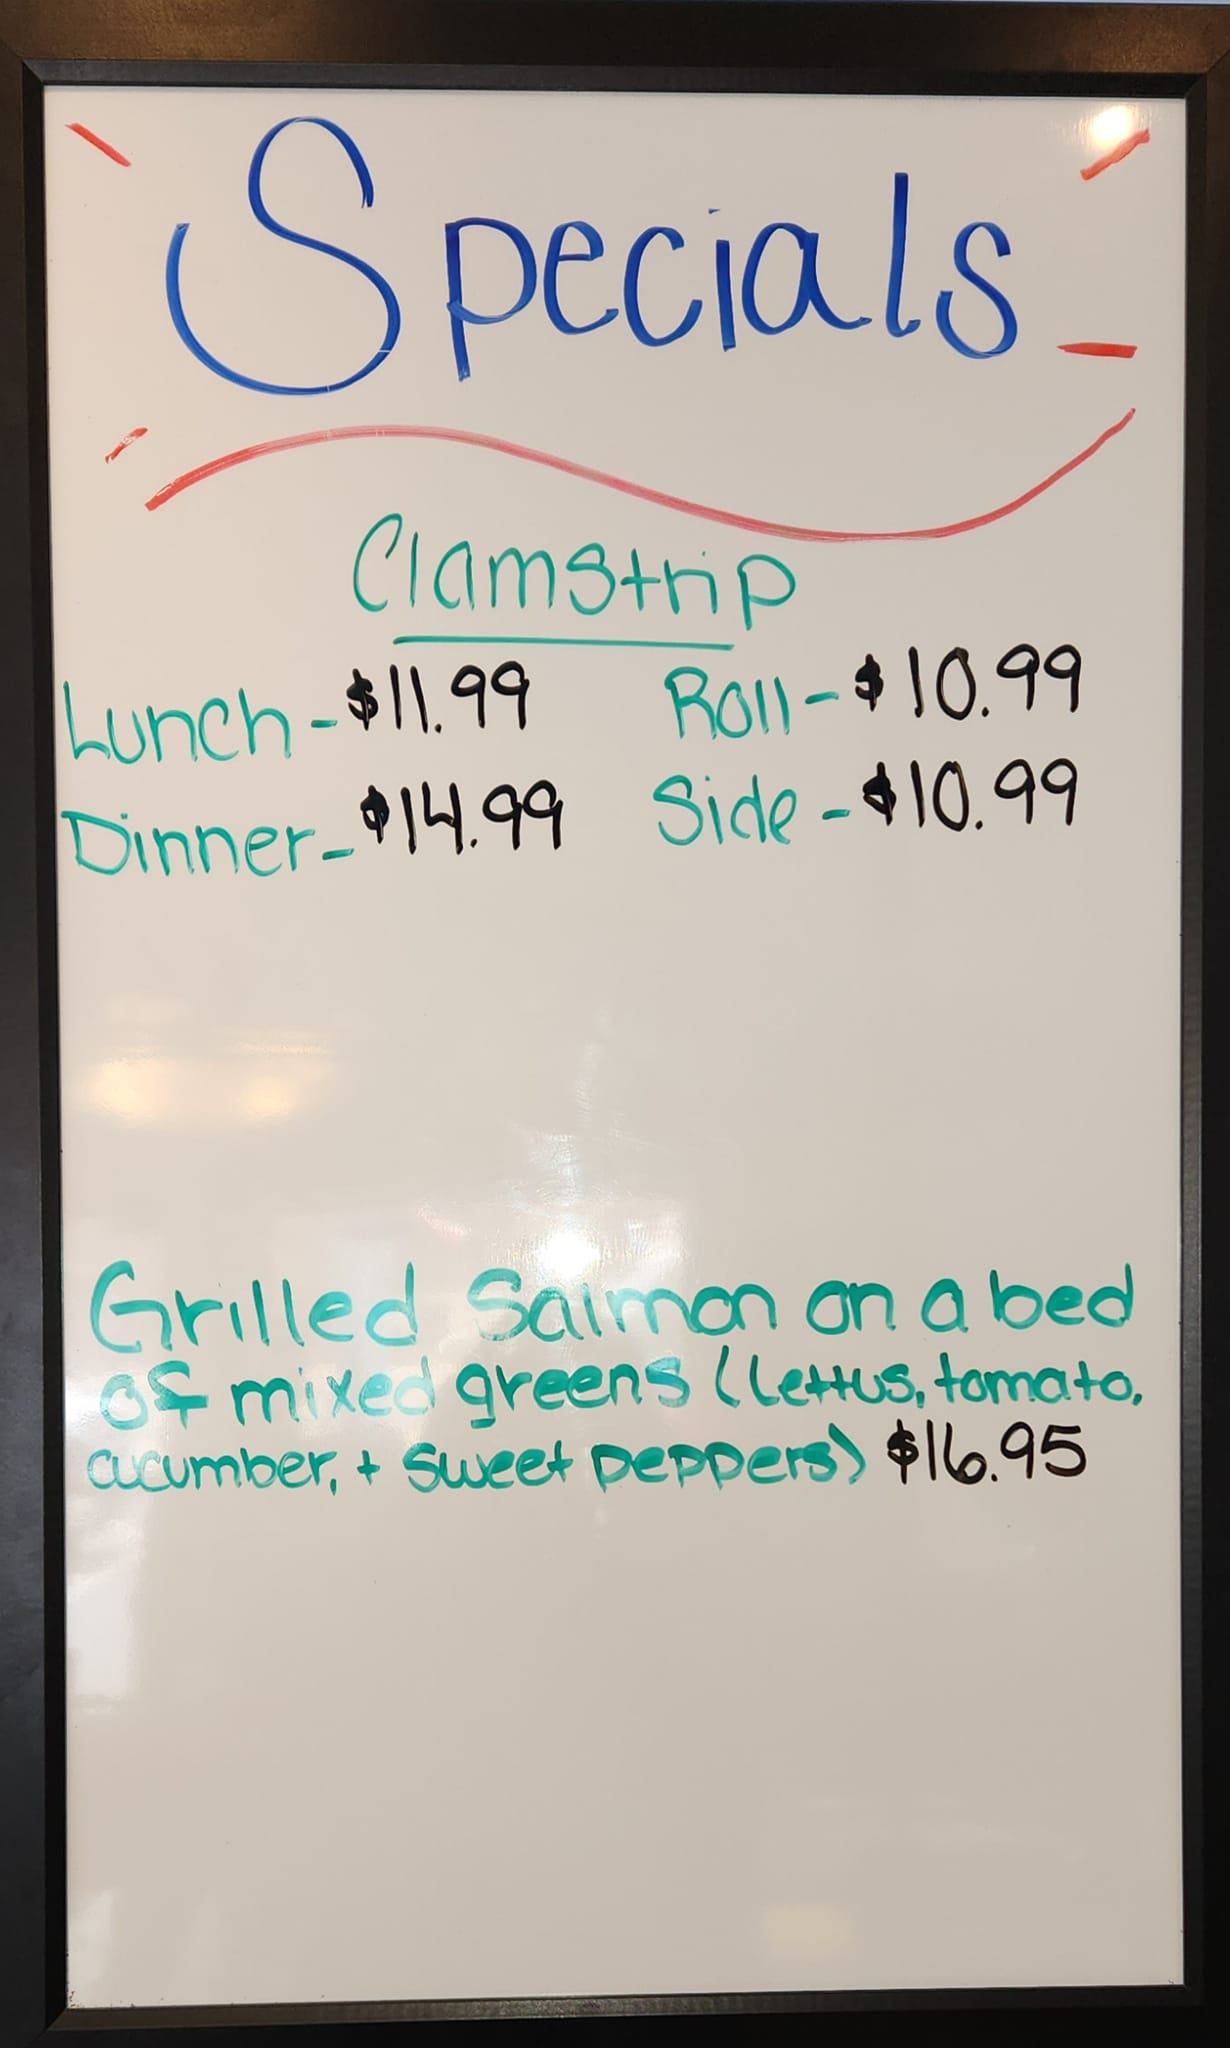 Specials
Clamstrip
Lunch - $11.99 Roll - $10.99
Dinner - $14.99 Side - $10.99
Grilled Salmon on a bed
of mixed greens (lettus, tomato,
cucumber, + sweet peppers) $16.95